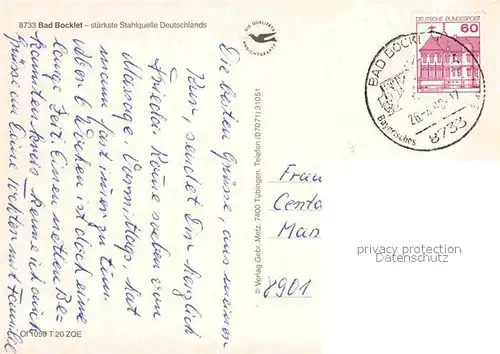 8733 Bad Bocklet – stärkste Stahlquelle Deutschlands
DIE QUALITÄTS
ANSICHTSKARTE
Die besten Grüsse, aus meiner
Kur, sendet Dir herzlich
Frieda. Komme soeben von
Massage. Vormittags hat
man fast immer zu tun.
Aber 6 Wochen ist doch eine
lange Zeit. Einen netten Be-
kanntenkreis kenne ich auch
Grüsse an Deine Tochter mit Familie
© Verlag Gebr. Metz, 7400 Tübingen, Telefon (07071) 31051
Of 1050 T 20 ZQE
DEUTSCHE BUNDESPOST
60
BAD BOCKLET
Bayerisches
8733
Frau
Cente
Man
8901
privacy protection
Datenschutz